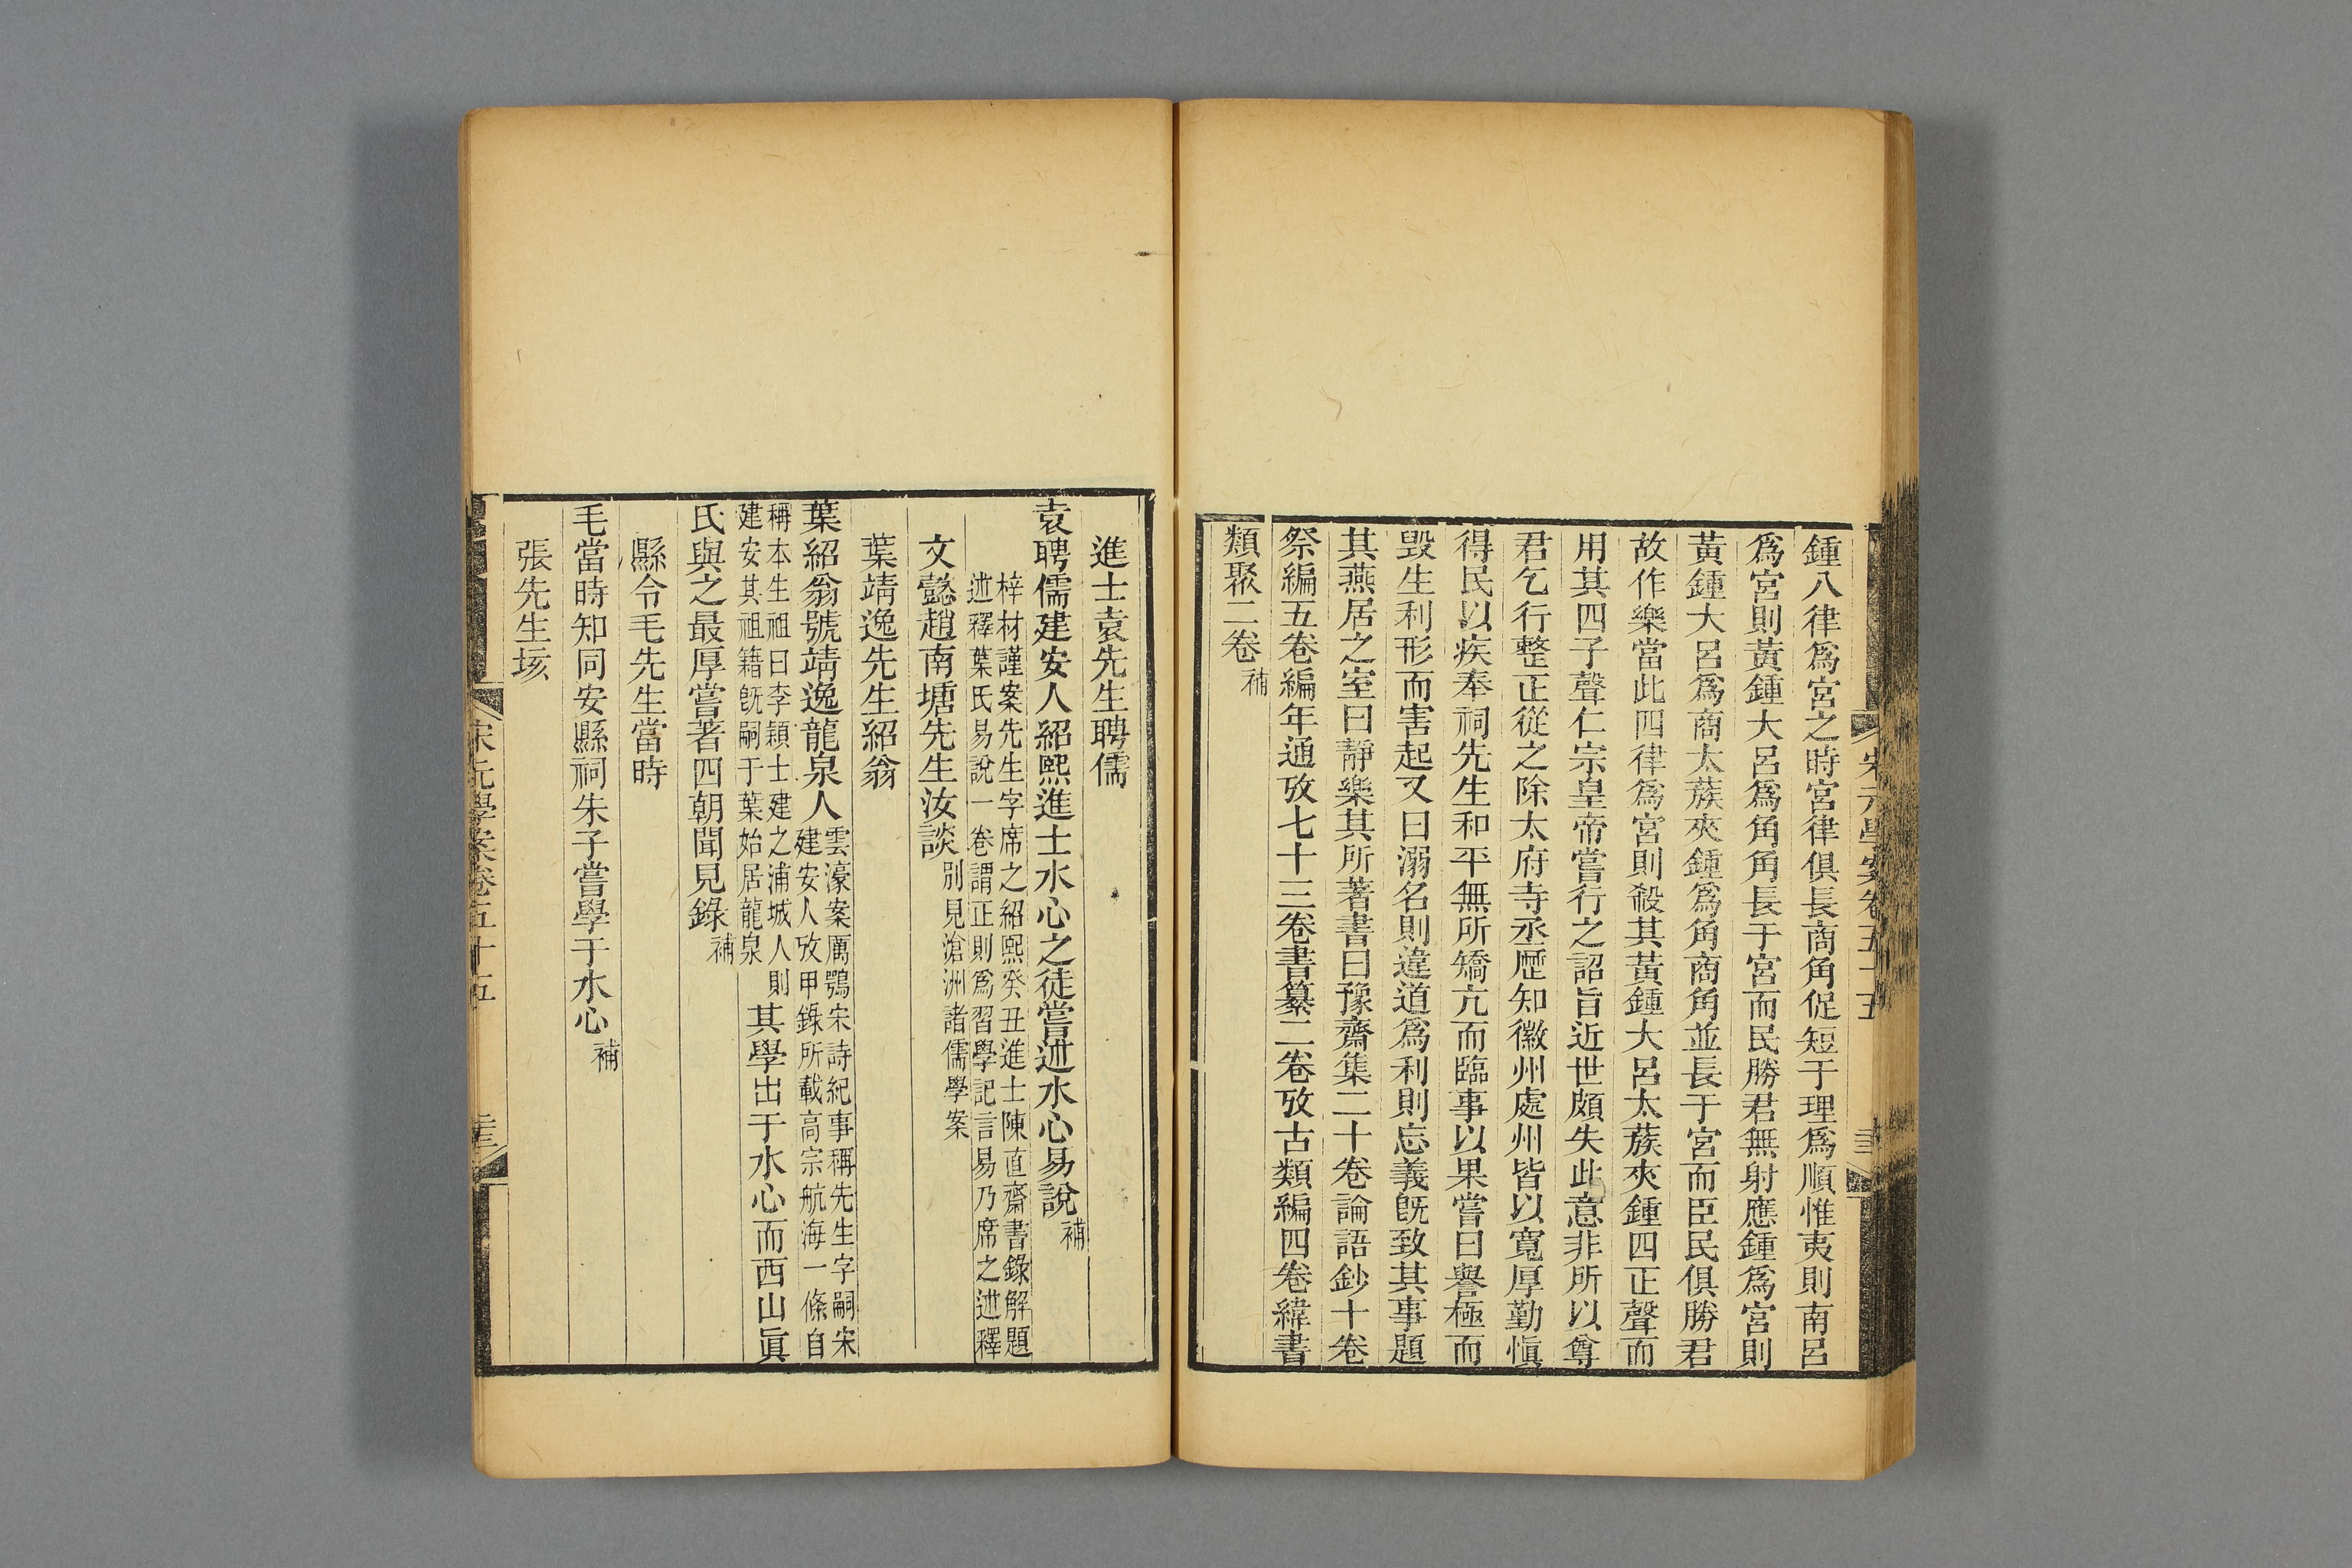 鍾八律爲宮之時宮律俱長商角促短于理爲順惟夷則南呂
爲宮則黃鍾大呂爲角角長于宮而民勝君無射應鍾爲宮則
黃鍾大呂爲商太蔟夾鍾爲角商角並長于宮而臣民俱勝君
故作樂當此四律爲宮則殺其黃鍾大呂太蔟夾鍾四正聲而
用其四子聲仁宗皇帝嘗行之詔旨近世頗失此意非所以尊
君乞行整正從之除太府寺丞歷知徽州處州皆以寬厚勤愼
得民以疾奉祠先生和平無所矯亢而臨事以果嘗曰譽極而
毀生利形而害起又曰溺名則違道爲利則忘義旣致其事題
其燕居之室曰靜樂其所著書曰豫齋集二十卷論語鈔十卷
祭編五卷編年通攷七十三卷書纂二卷攷古類編四卷緯書
類聚二卷補
宋元學案卷五十五
進士袁先生聘儒
袁聘儒建安人紹熙進士水心之徒嘗述水心易說補
梓材謹案先生字席之紹熙癸丑進士陳直齋書錄解題
述釋葉氏易說一卷謂正則爲習學記言易乃席之述釋
文懿趙南塘先生汝談別見滄洲諸儒學案
葉靖逸先生紹翁
葉紹翁號靖逸龍泉人雲濠案厲鶚宋詩紀事稱先生字嗣宋
建安人攷甲錄所載高宗航海一條自
稱本生祖曰李穎士建之浦城人則
建安其祖籍旣嗣于葉始居龍泉其學出于水心而西山眞
氏與之最厚嘗著四朝聞見錄補
縣令毛先生當時
毛當時知同安縣祠朱子嘗學于水心補
張先生垓
宋元學案卷五十五